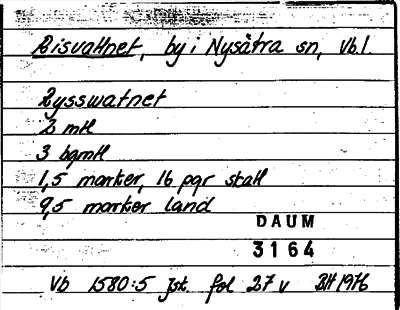 Risvattnet, by i Nysätra sn, Vb.l.
Rysswatnet
2 mtl
3 bgmtl
1,5 marker, 16 pgr skatt
9,5 marker land
DAUM
3164
Vb 1580:5 Jst fol 27 v BH 1976